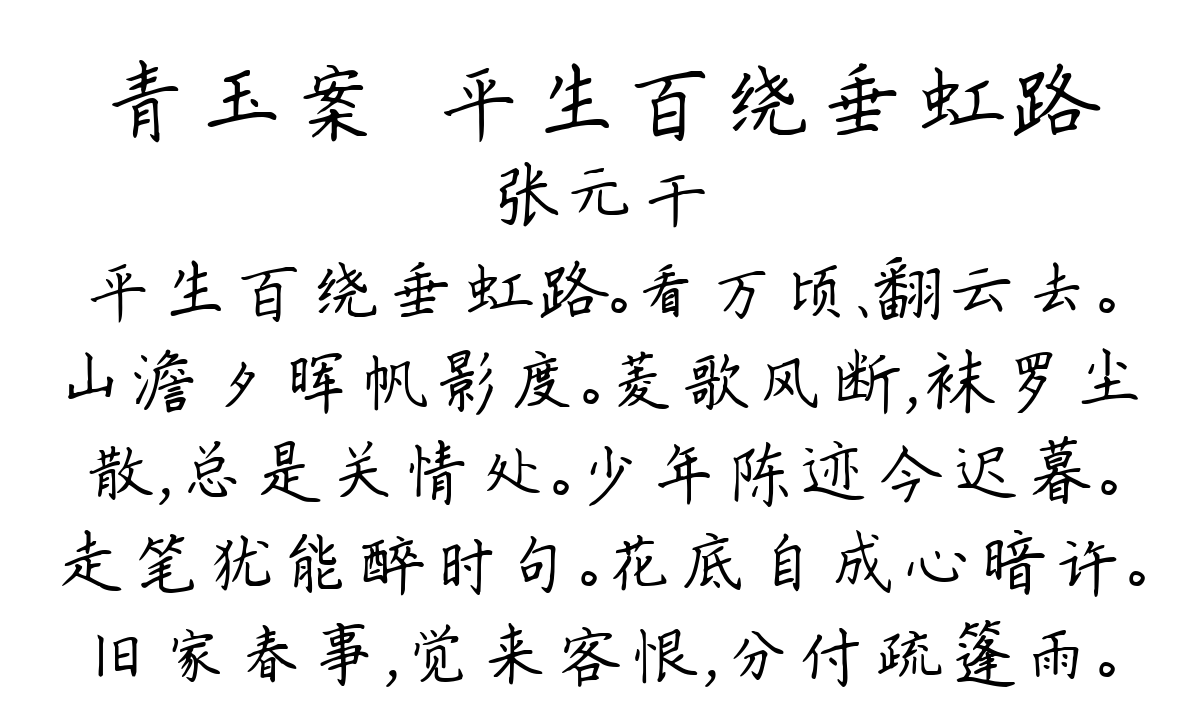 青玉案 平生百绕垂虹路
张元干
平生百绕垂虹路。看万顷、翻云去。
山澹夕晖帆影度。菱歌风断,袜罗尘
散,总是关情处。少年陈迹今迟暮。
走笔犹能醉时句。花底自成心暗许。
旧家春事,觉来客恨,分付疏篷雨。